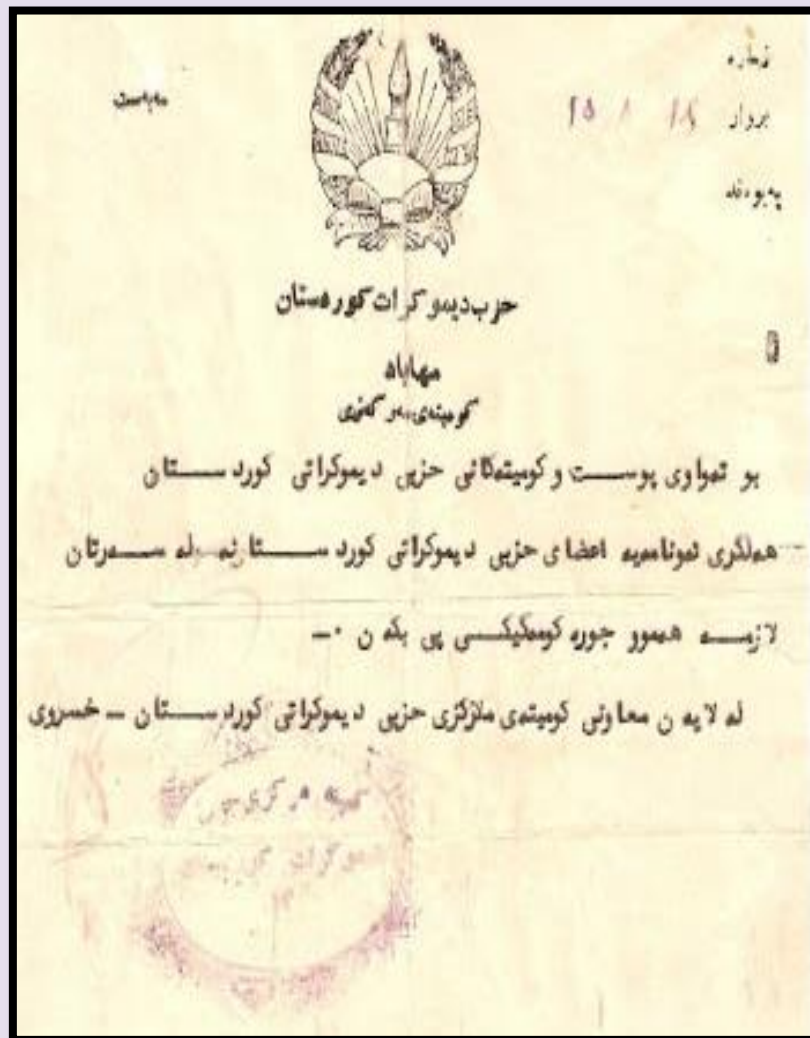 ژماره
بروار ١٤ ٨ ٢٥
پەیوەند
مەبەست
حزب دیمو کرات کوردستان
مهاباد
کومیتەی مەرکەزی
بو تەواوی پوست و کومیتەکانی حزبی دیموکراتی کوردستان
هەلگری ئەونامەیە اعضای حزبی دیموکراتی کوردستانە لە سەرتان
لازمە هەموو جورە کومەکیکی پی بکەن ٠ــ
لە لایەن معاونی کومیتەی مەرکزی حزبی دیموکراتی کوردستان ــ خسروی